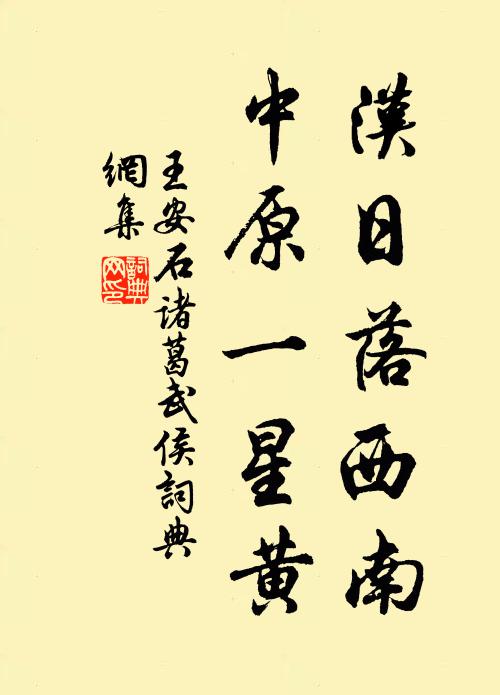 漢日落西南
中原一星黃
王安石諸葛武侯詞典
網集
詞典
網印